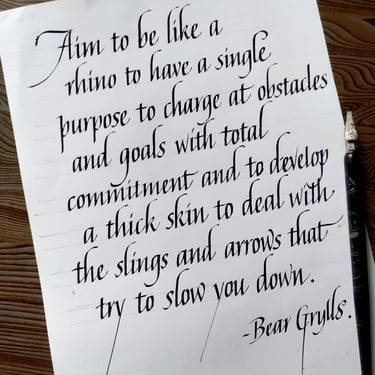 Aim to be like a
rhino to have a single
purpose to charge at obstacles
and goals with total
commitment and to develop
a thick skin to deal with
the slings and arrows that
try to slow you down.
-Bear Grylls.